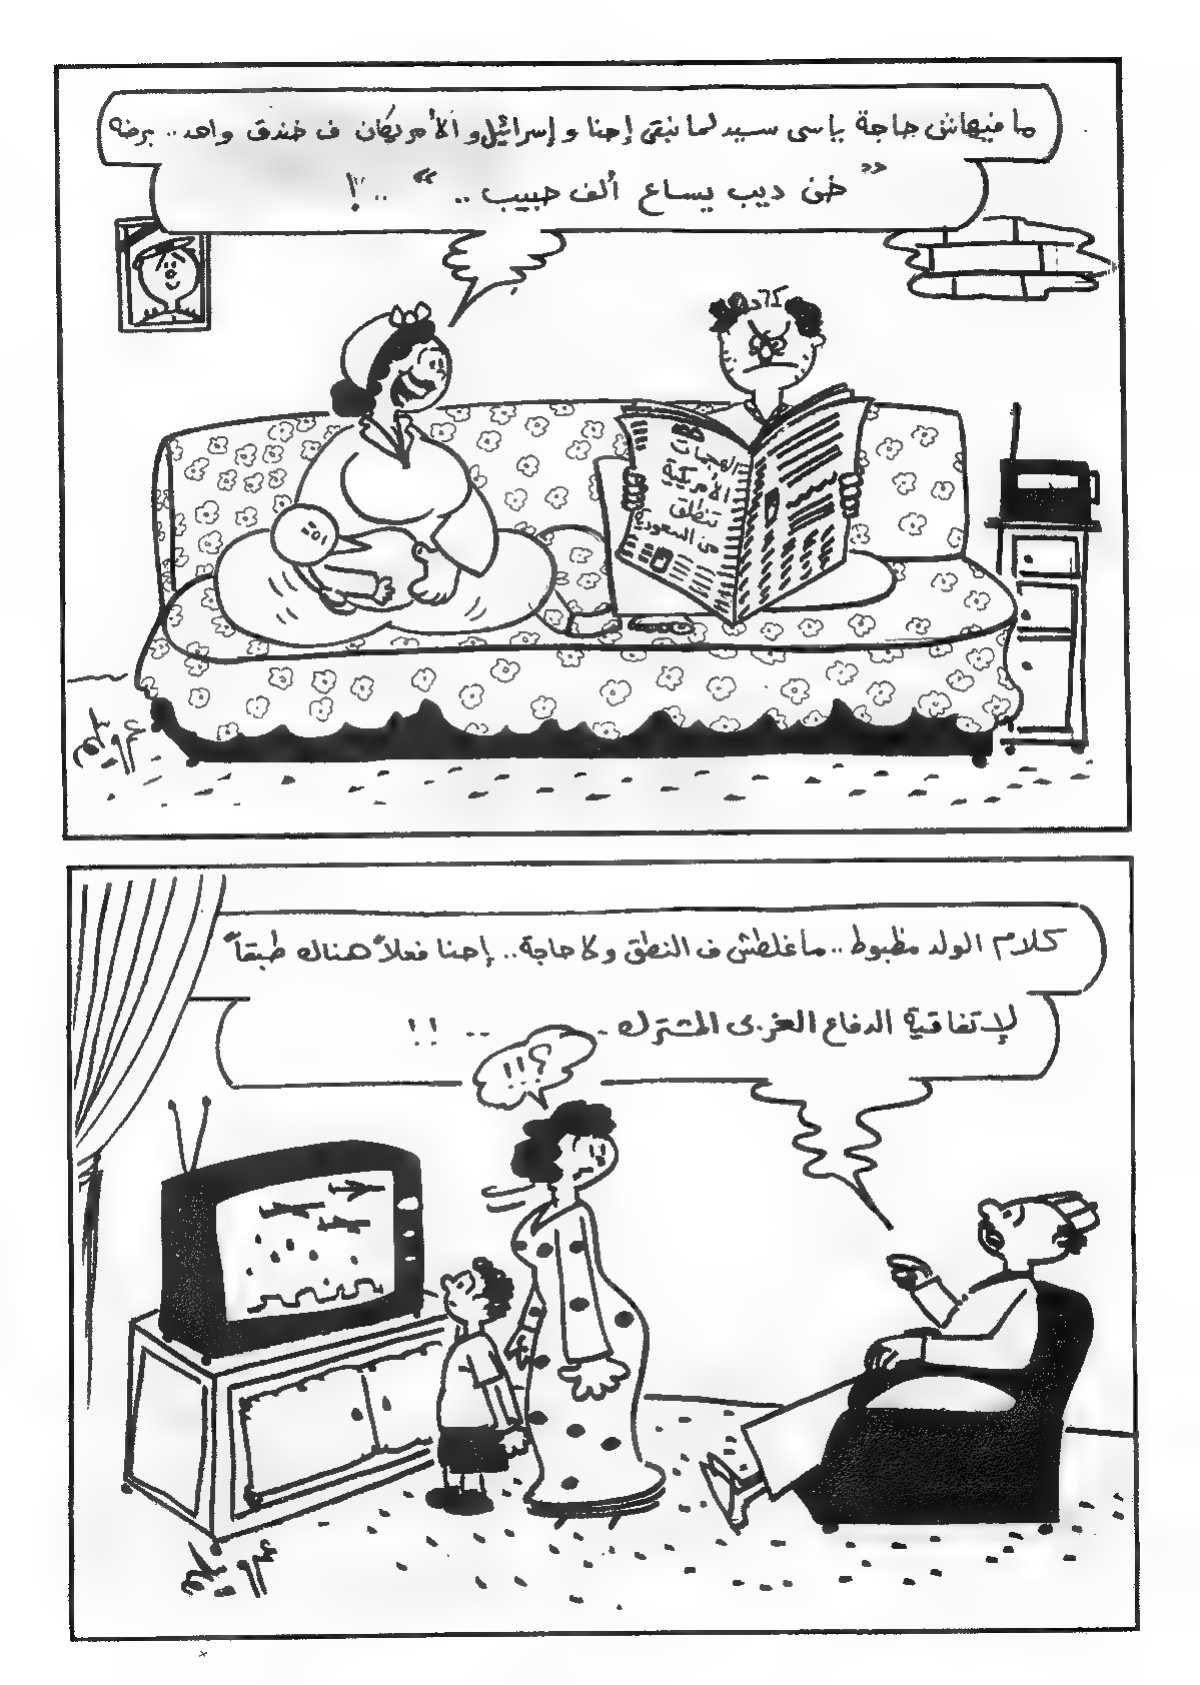 ما فيهاش حاجة ياسى سيد لما نبقى إحنا وإسرائيل والأمريكان ف خندق واحد.. برضه
" خن ديب يساع ألف حبيب .. " .. !
الهجمات
الأمريكية
تنطلق
من السعودية
كلام الولد مظبوط .. ماغلطش ف النطق ولا حاجة.. إحنا فعلاً هناك طبقاً
لإتفاقية الدفاع الغربى المشترك .. .. !!
؟!!